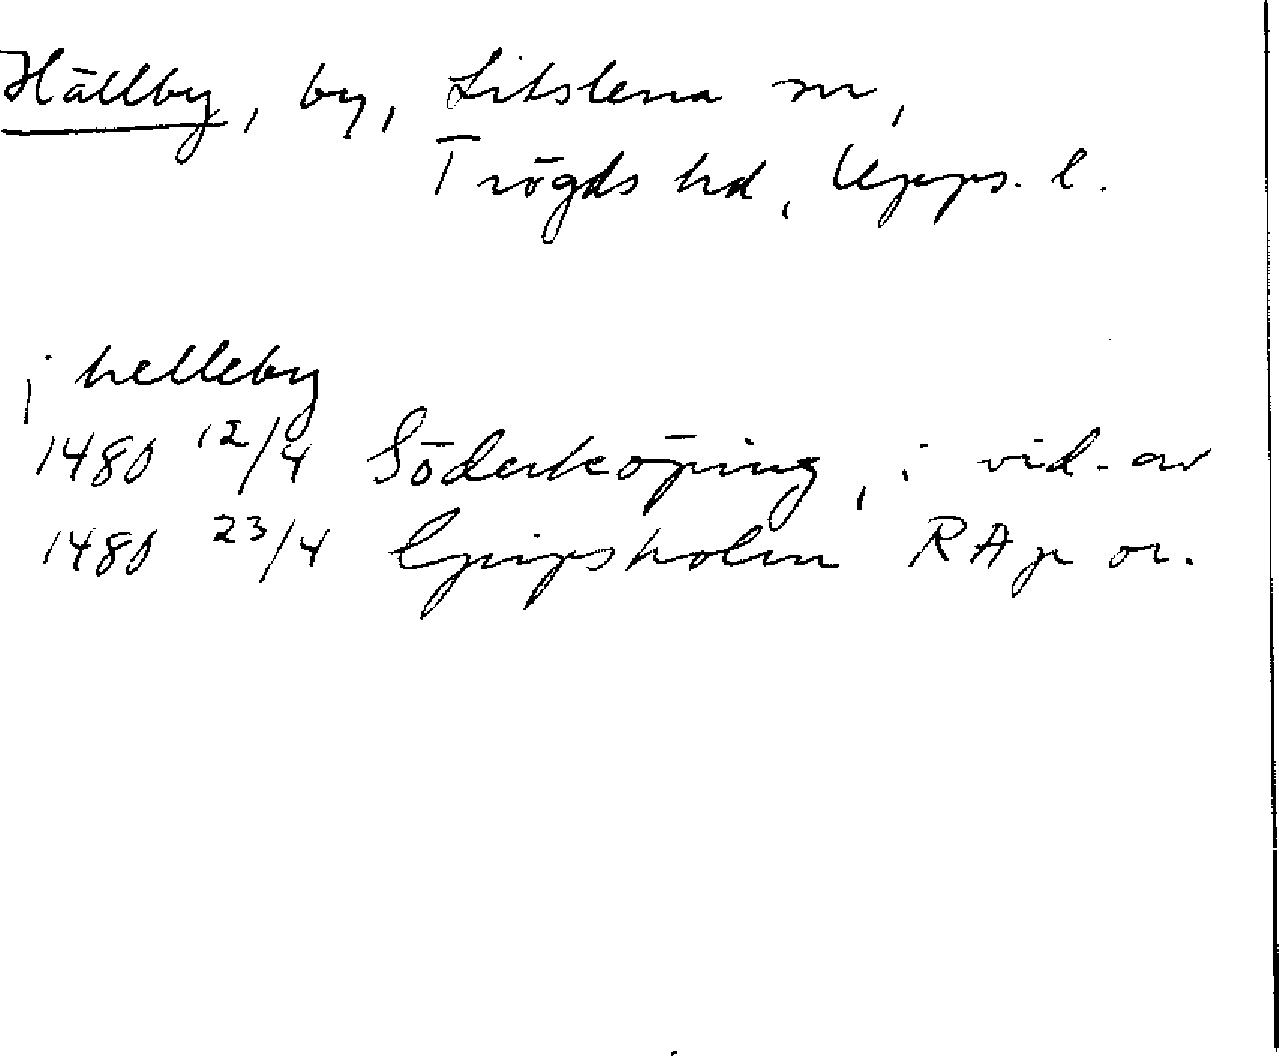 Hällby, by, Litslena sn,
Trögds hd, Upps. l.
j helleby
1480 12/4 Söderköping, i vid. av
1480 23/4 Gripsholm RAp or.